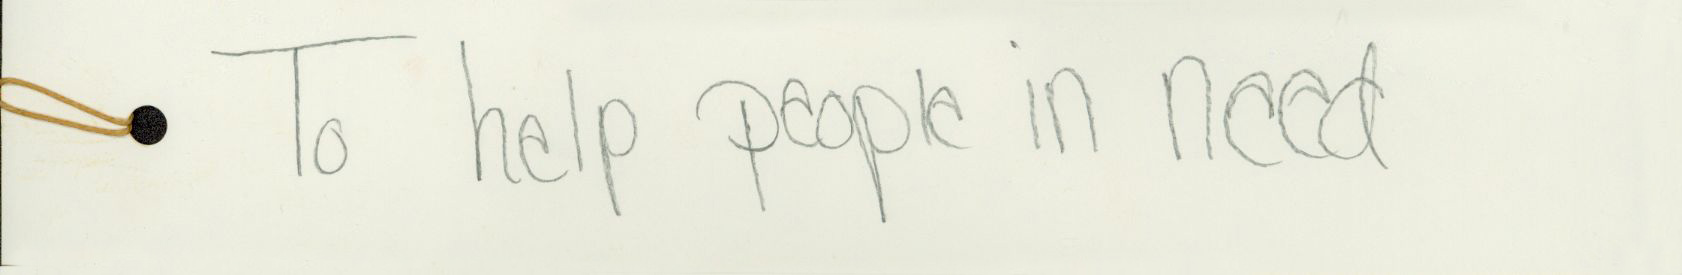 To help people in need